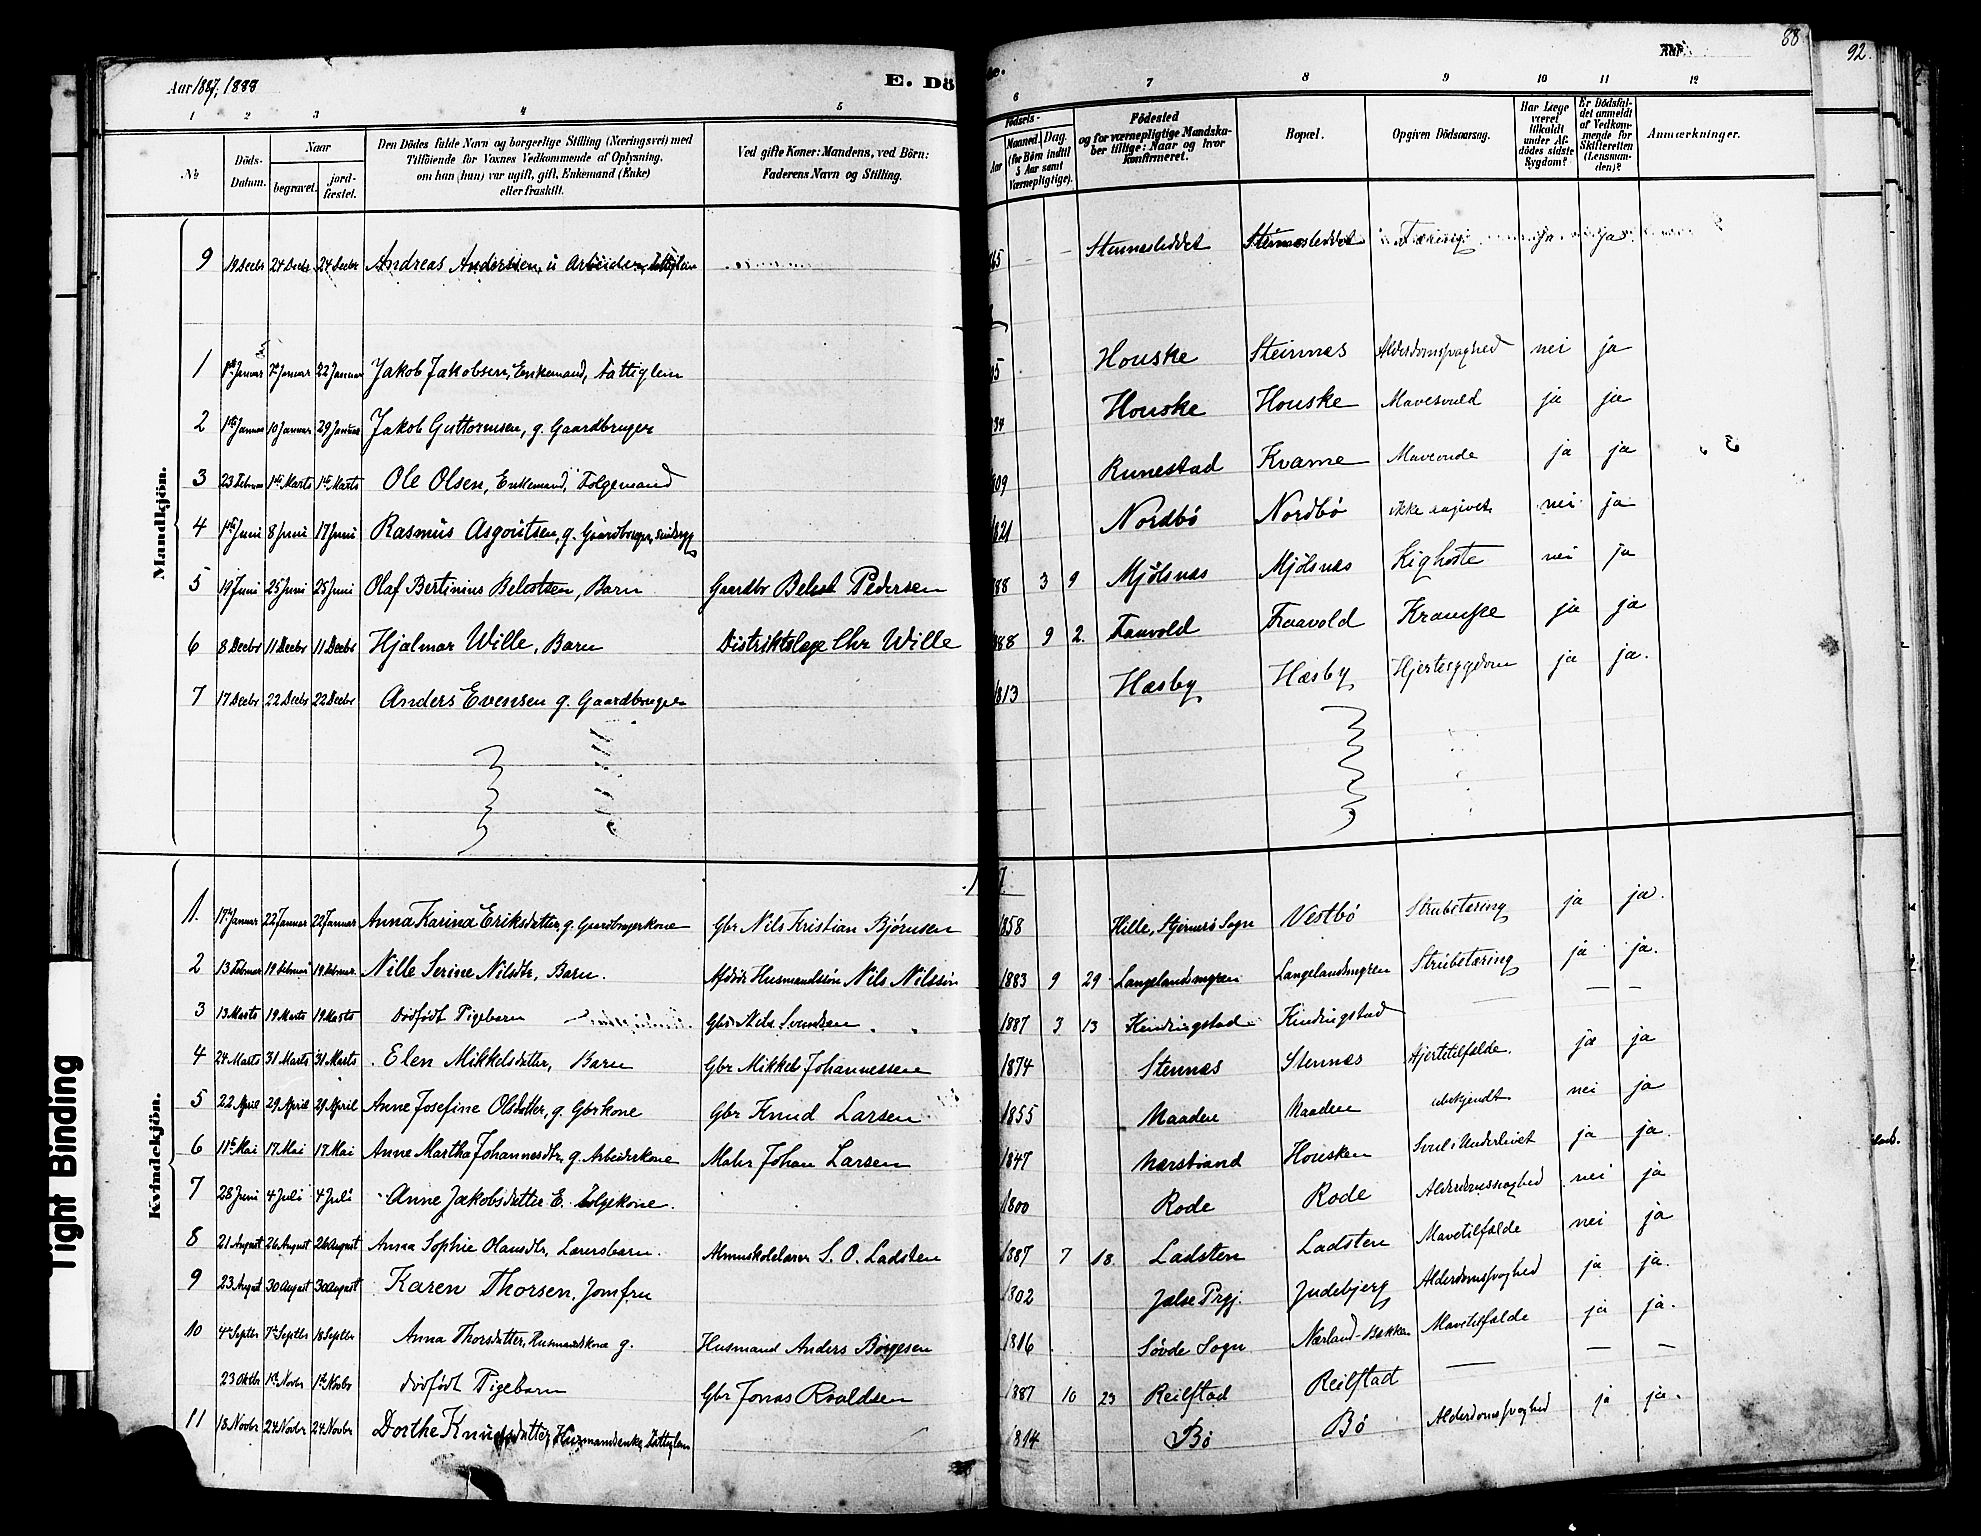 Aar 1887, 1888 E. Dö
88
92.
1 2 3 4 5 6 7 8 9 10 11 12
№
Döds-Datum.
Naar
begravet.
jord-fæstet.
Den Dödes fulde Navn og borgerlige Stilling (Næringsvei) med
Tilföiende for Voxnes Vedkommende af Oplysning,
om han (hun) var ugift, gift, Enkemand (Enke)
eller fraskilt.
Ved gifte Koner: Mandens, ved Börn:
Faderens Navn og Stilling.
Födsels-
Aar
Maaned. Dag.
(for Börn indtil
5 Aar samt
Værnepligtige).
Födested
og for værnepligtige Mandska-
ber tillige: Naar og hvor
konfirmeret.
Bopæl.
Opgiven Dödsaarsag.
Har Læge
været
tilkaldt
under Af-
dödes sidste
Sygdom?
Er Dödsfal-
det anmeldt
af Vedkom-
mende for
Skifteretten
(Lensman-
den)?
Anmærkninger.
Mandkjön.
9 19 Decbr 24 Decbr 24 Decbr Andreas Anderssen, u Arbeider, Fattiglem 65 Stennesleddet Stennesleddet Tæring ja ja
1 1ste Januar Januar 22 Januar Jakob Jakobsen, Enkemand, Fattiglem Houske Steinnes Alderdomssvaghed nei ja
2 1ste Januar 10 Januar 29 Januar Jakob Guttormsen, g. Gaardbruger 34 Houske Houske Mavesvuld ja ja
3 23 Februar 1ste Marts 1ste Marts Ole Olsen, Enkemand, Folgemand 09 Runestad Kvame Maveonde ja ja
4 1ste Juni 8 Juni 17 Juni Rasmus Asgoutsen, g. Gaardbruger, 1821 Nordbø Nordbø ikke angivet nei ja
5 19 Juni 25 Juni 25 Juni Olaf Bertinius Belestsen, Barn Gaardbr Belest Pedersen 88 3 9 Mjølsnæs Mjølsnæs Kighoste nei ja
6 8 Decbr 11 Decbr 11 Decbr Hjalmar Wille, Barn Distriktslæge Chr Wille 888 9 2. Faavold Faavold Krampe ja ja
7 17 Decbr 22 Decbr 22 Decbr Anders Evensen g. Gaardbruger 1813 Hæsby Hæsby Hjertesygdom ja ja.
Kvindekjön.
1. 17 Januar 22 Januar 22 Januar Anna Karina Eriksdatter, g. Gaardbrugerkone Gbr Nils Kristian Bjørnsen 1858 Hille, Stjernerø Sogn Vestbø Strubetæring ja ja.
2 13 Februar 19 Februar 19 Februar Nille Serine Nilsdtr, Barn. Afdøde Husmandssøn Nils Nilssøn 1883 9 29 Langelandsmyren Langelandsmyren Strubetæring ja ja.
3 13 Marts 19 Marts 19 Marts Dødfødt Pigebarn Gbr Nils Svendsen 1887 3 13 Kindingstad Kindingstad — — —
4 24 Marts 31 Marts 31 Marts Elen Mikkelsdatter, Barn Gbr Mikkel Johannessen 1874 Stennæs Stennæs Hjertetilfælde. ja ja
5 22 April 29 April 29 April Anne Josefine Olsdatter, g. Gbrkone Gbr Knud Larsen 1855 Naaden Naaden ubekjendt nei ja
6 11te Mai 17 Mai 17 Mai Anne Martha Johannesdtr, g. Arbeiderkone Maler Johan Larsen 1847 Nærstrand Housken Svul i Underlivet ja ja.
7 28 Juni 4 Juli 4 Juli Anne Jakobsdatter E. Folgekone. 1800 Rode Rode Alderdomssvaghed nei ja
8 21 August 26 August 26 August Anna Sophie Olausdtr, Lærersbarn. Almueskolelærer S. O. Ladsten 1887 7 18 Ladsten Ladsten Mavetilfælde nei ja
9 23 August 30 August 30 August Karen Thorsen, Jomfru 1802 Jelse Prgj. Judebjerg Alderdomssvaghed ja ja.
10 4de Septbr 7de Septbr 18 Septbr Anna Thorsdatter, Husmandskone g. Husmand Anders Børgesen 1816 Søvde Sogn Nærland-Bakken Mavetilfælde ja ja.
23 Oktbr 1ste Novbr 1ste Novbr dødfødt Pigebarn Gbr Jonas Roaldsen 1887 10 23 Reilstad Reilstad — — —
11 18 Novbr 24 Novbr 24 Novbr Dorthe Knudsdatter, Husmandsenke, Fattiglem 1814 Bø Bø Alderdomssvaghed ja ja.
Tight Binding